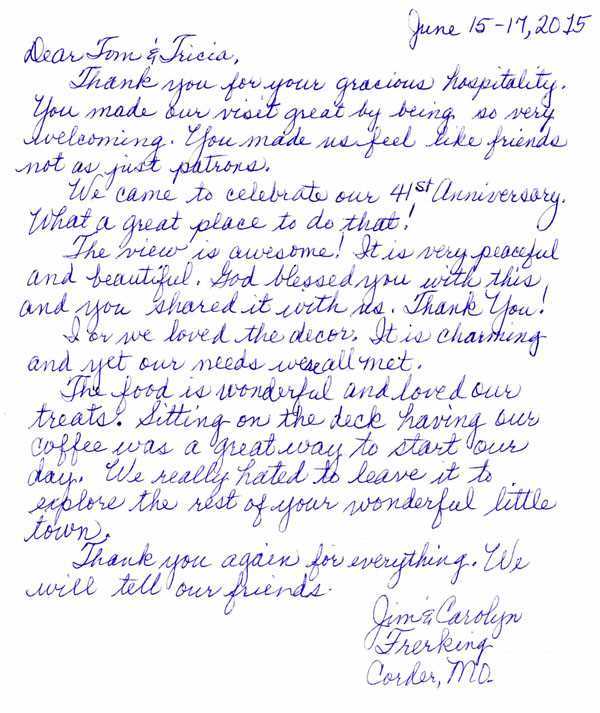 June 15-17, 2015
Dear Tom & Tricia,
Thank you for your gracious hospitality.
You made our visit great by being so very
welcoming. You made us feel like friends
not as just patrons.
We came to celebrate our 41st Anniversary.
What a great place to do that!
The view is awesome! It is very peaceful
and beautiful. God blessed you with this
and you shared it with us. Thank You!
I or we loved the decor. It is charming
and yet our needs were all met.
The food is wonderful and loved our
treats. Sitting on the deck having our
coffee was a great way to start our
day. We really hated to leave it to
explore the rest of your wonderful little
town.
Thank you again for everything. We
will tell our friends.
Jim & Carolyn
Frerking
Corder, MO.